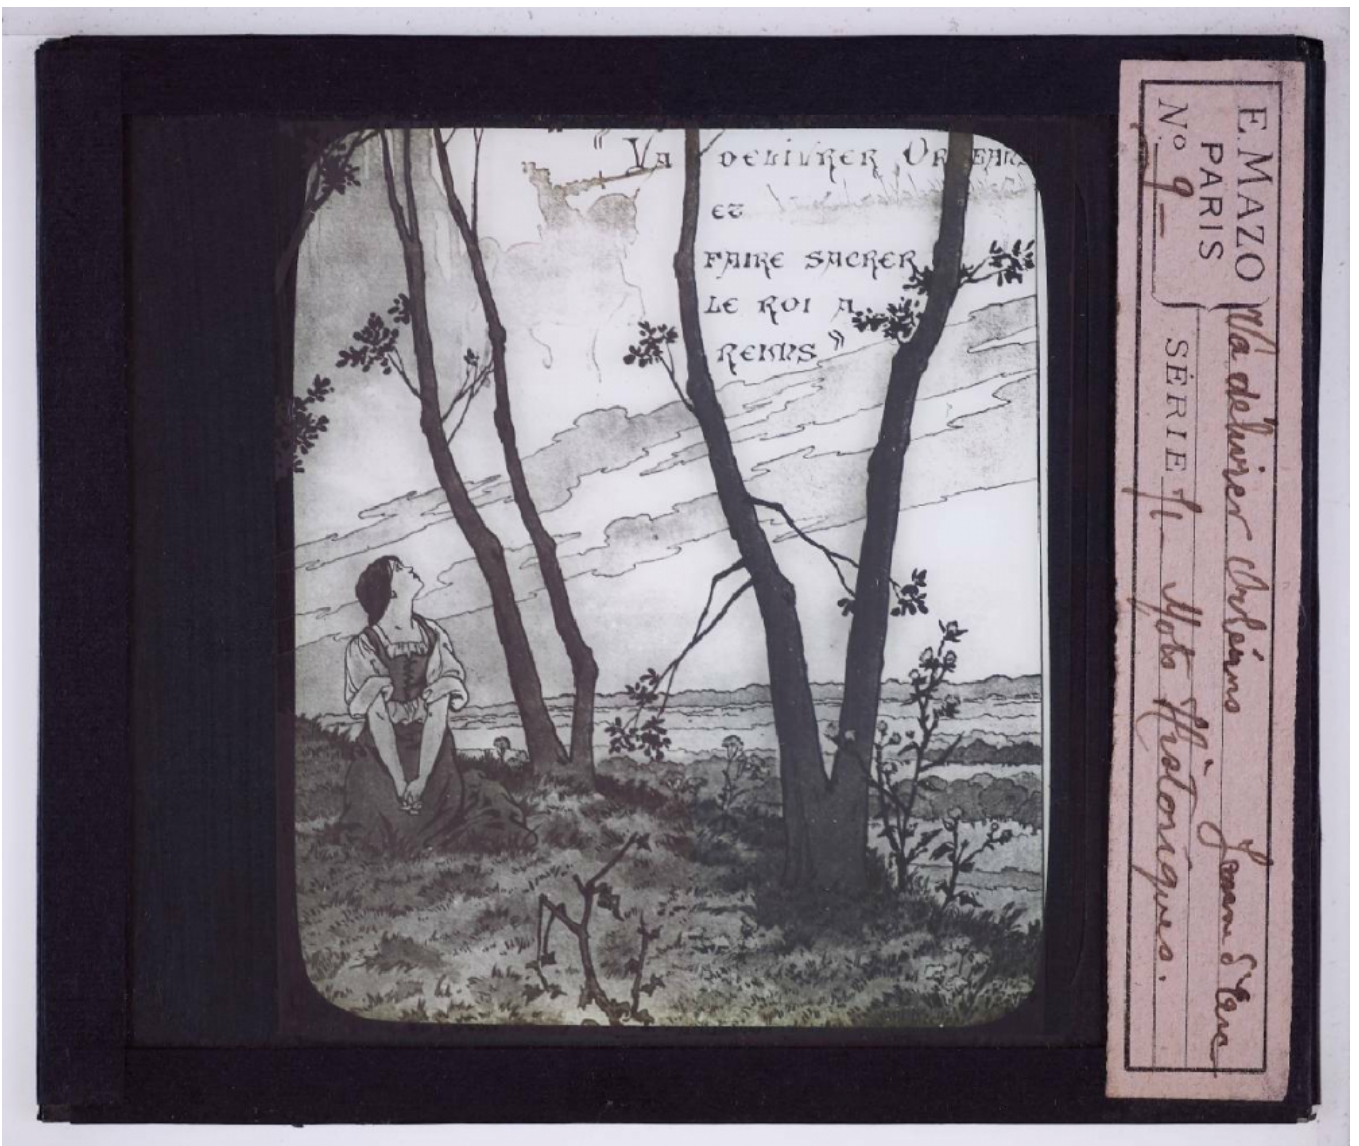 « Va delivrer Orleans
et
faire sacrer
le roi a
Reims »
E. MAZO
PARIS
No. 9 -
Va délivrer Orléans Jeanne d'Arc
SÉRIE Mots Historiques.